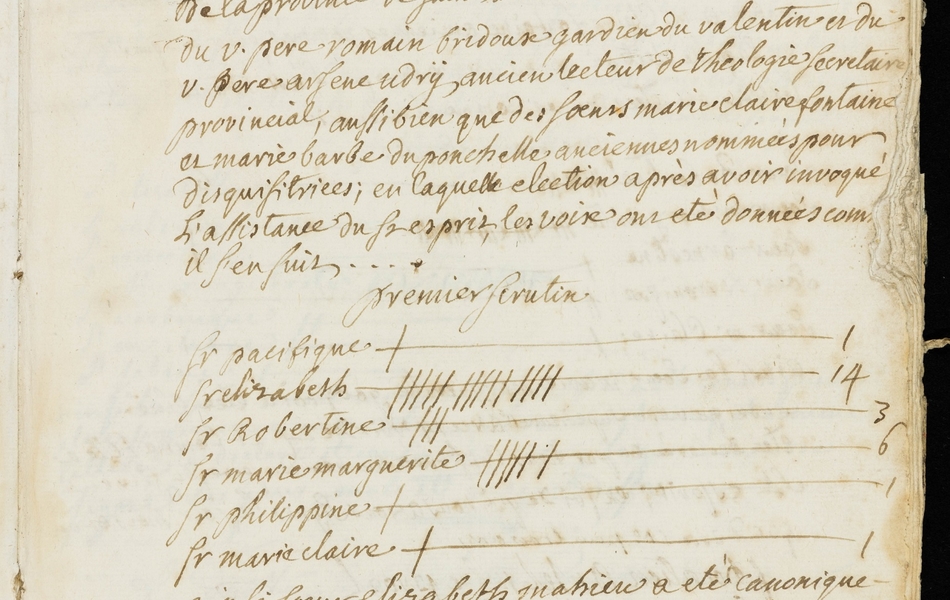 de la province de
du v. pere romain bridoux gardien du valentin et du
v. pere arsene udry ancien lecteur de theologie secretaire
provincial, aussi bien que des sœurs marie claire fontaine
et marie barbe du ponchelle anciennes nommées pour
disquisitrices; en laquelle election après avoir invoqué
L'assistance du st esprit, les voix ont eté données com
il s'en suit . . . .
premier scrutin
sr pacifique 1
sr elizabeth 14
sr Robertine 3
sr marie marguerite 6
sr philippine 1
sr marie claire 1
elizabeth mahieu a eté canonique-